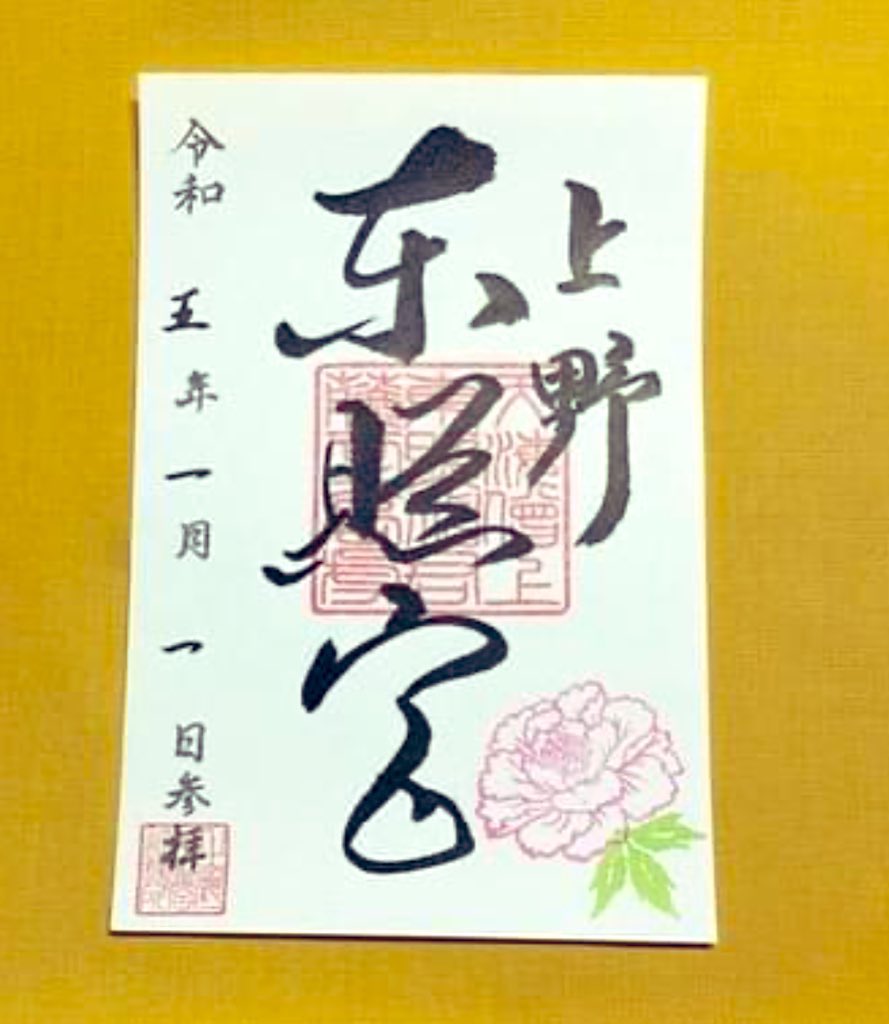 上野
東照宮
令和五年一月一日参拝